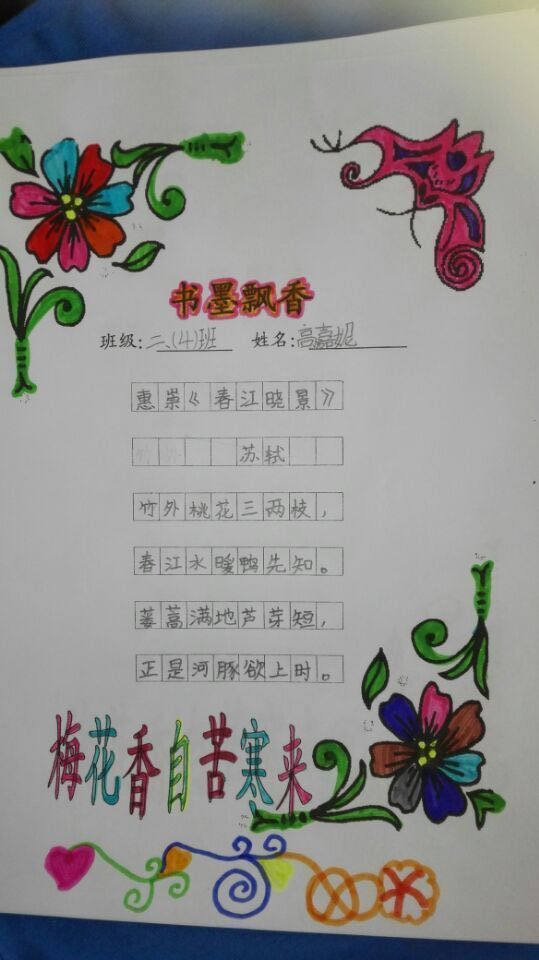 书墨飘香
班级:二、(4)班 姓名:高嘉妮
惠崇《春江晓景》
苏轼
竹外桃花三两枝，
春江水暖鸭先知。
蒌蒿满地芦芽短，
正是河豚欲上时。
梅花香自苦寒来